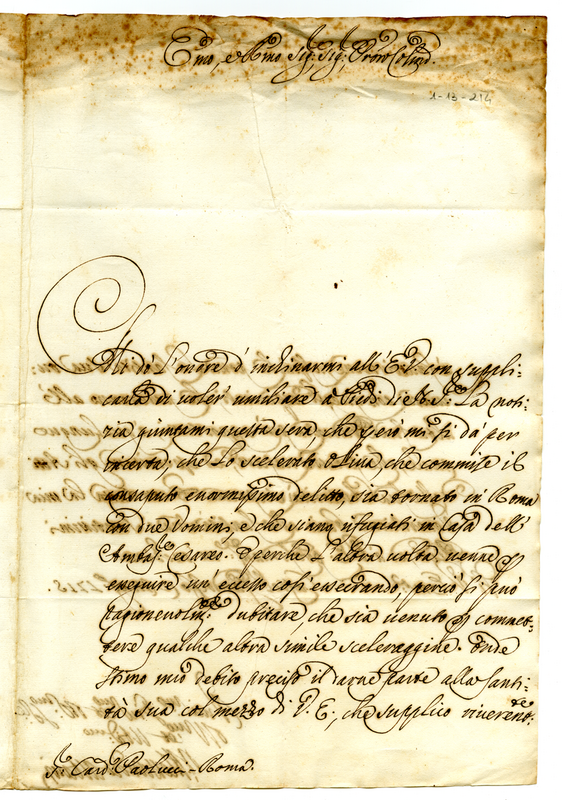 Emo, e Rmo Sig:, Sig:, Prōn Colmo.
1-13-214
Mi dò l'onore d'inchinarmi all'E. V. con suppli:
carla di voler umiliare a' Piedi di N. S.re La noti:
zia giuntami questa sera, che però mi si dà per
incerta; che Lo scelerato Oliva che commise il
consaputo enormissimo delitto, sia tornato in Roma
con due Uomini, e che siano rifugiati in Casa dell'
Ambas:r Cesareo. E perche l'altra volta venne p
eseguire un eccesso così essecrando, perciò si può
ragionevolm.te dubitare, che sia venuto p commet:
tere qualche altra simile sceleraggine. Onde
stimo mio debito preciso il darne parte alla Santi:
tà sua col mezzo di V. E., che supplico riverent.te
S.r Card. Paolucci - Roma.